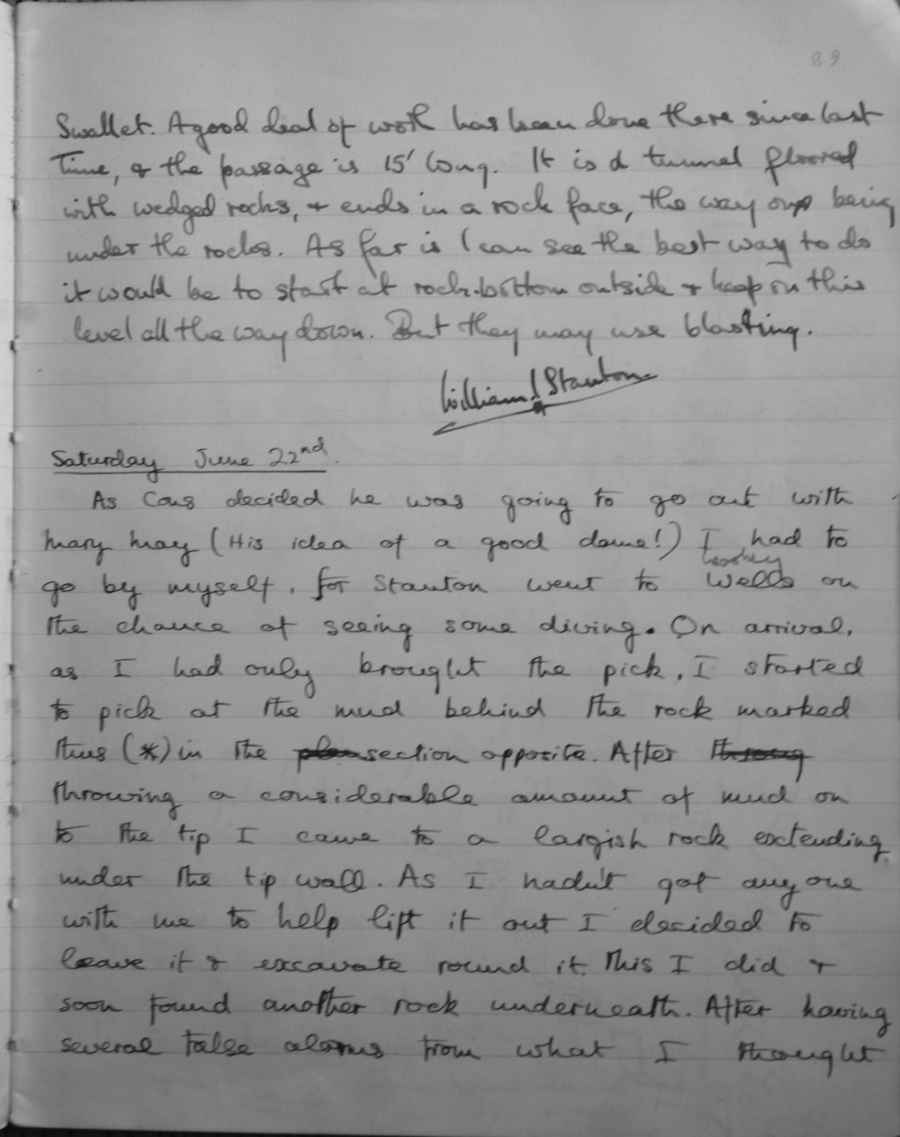 89
Swallet. A good deal of work has been done there since last
time, & the passage is 15' long. It is a tunnel floored
with wedged rocks, + ends in a rock face, the way on being
under the rocks. As far is I can see the best way to do
it would be to start at rock-bottom outside + keep on this
level all the way down. But they may use blasting.
William I Stanton
Saturday June 22nd.
As Cous decided he was going to go out with
Mary May (His idea of a good dame!) I had to
go by myself, for Stanton went to Wells on
the chance of seeing some diving. On arrival,
as I had only brought the pick, I started
to pick at the mud behind the rock marked
thus (*) in the section opposite. After
throwing a considerable amount of mud on
to the tip I came to a largish rock extending
under the tip wall. As I hadn't got anyone
with me to help lift it out I decided to
leave it & excavate round it. This I did +
soon found another rock underneath. After having
several false alarms from what I thought